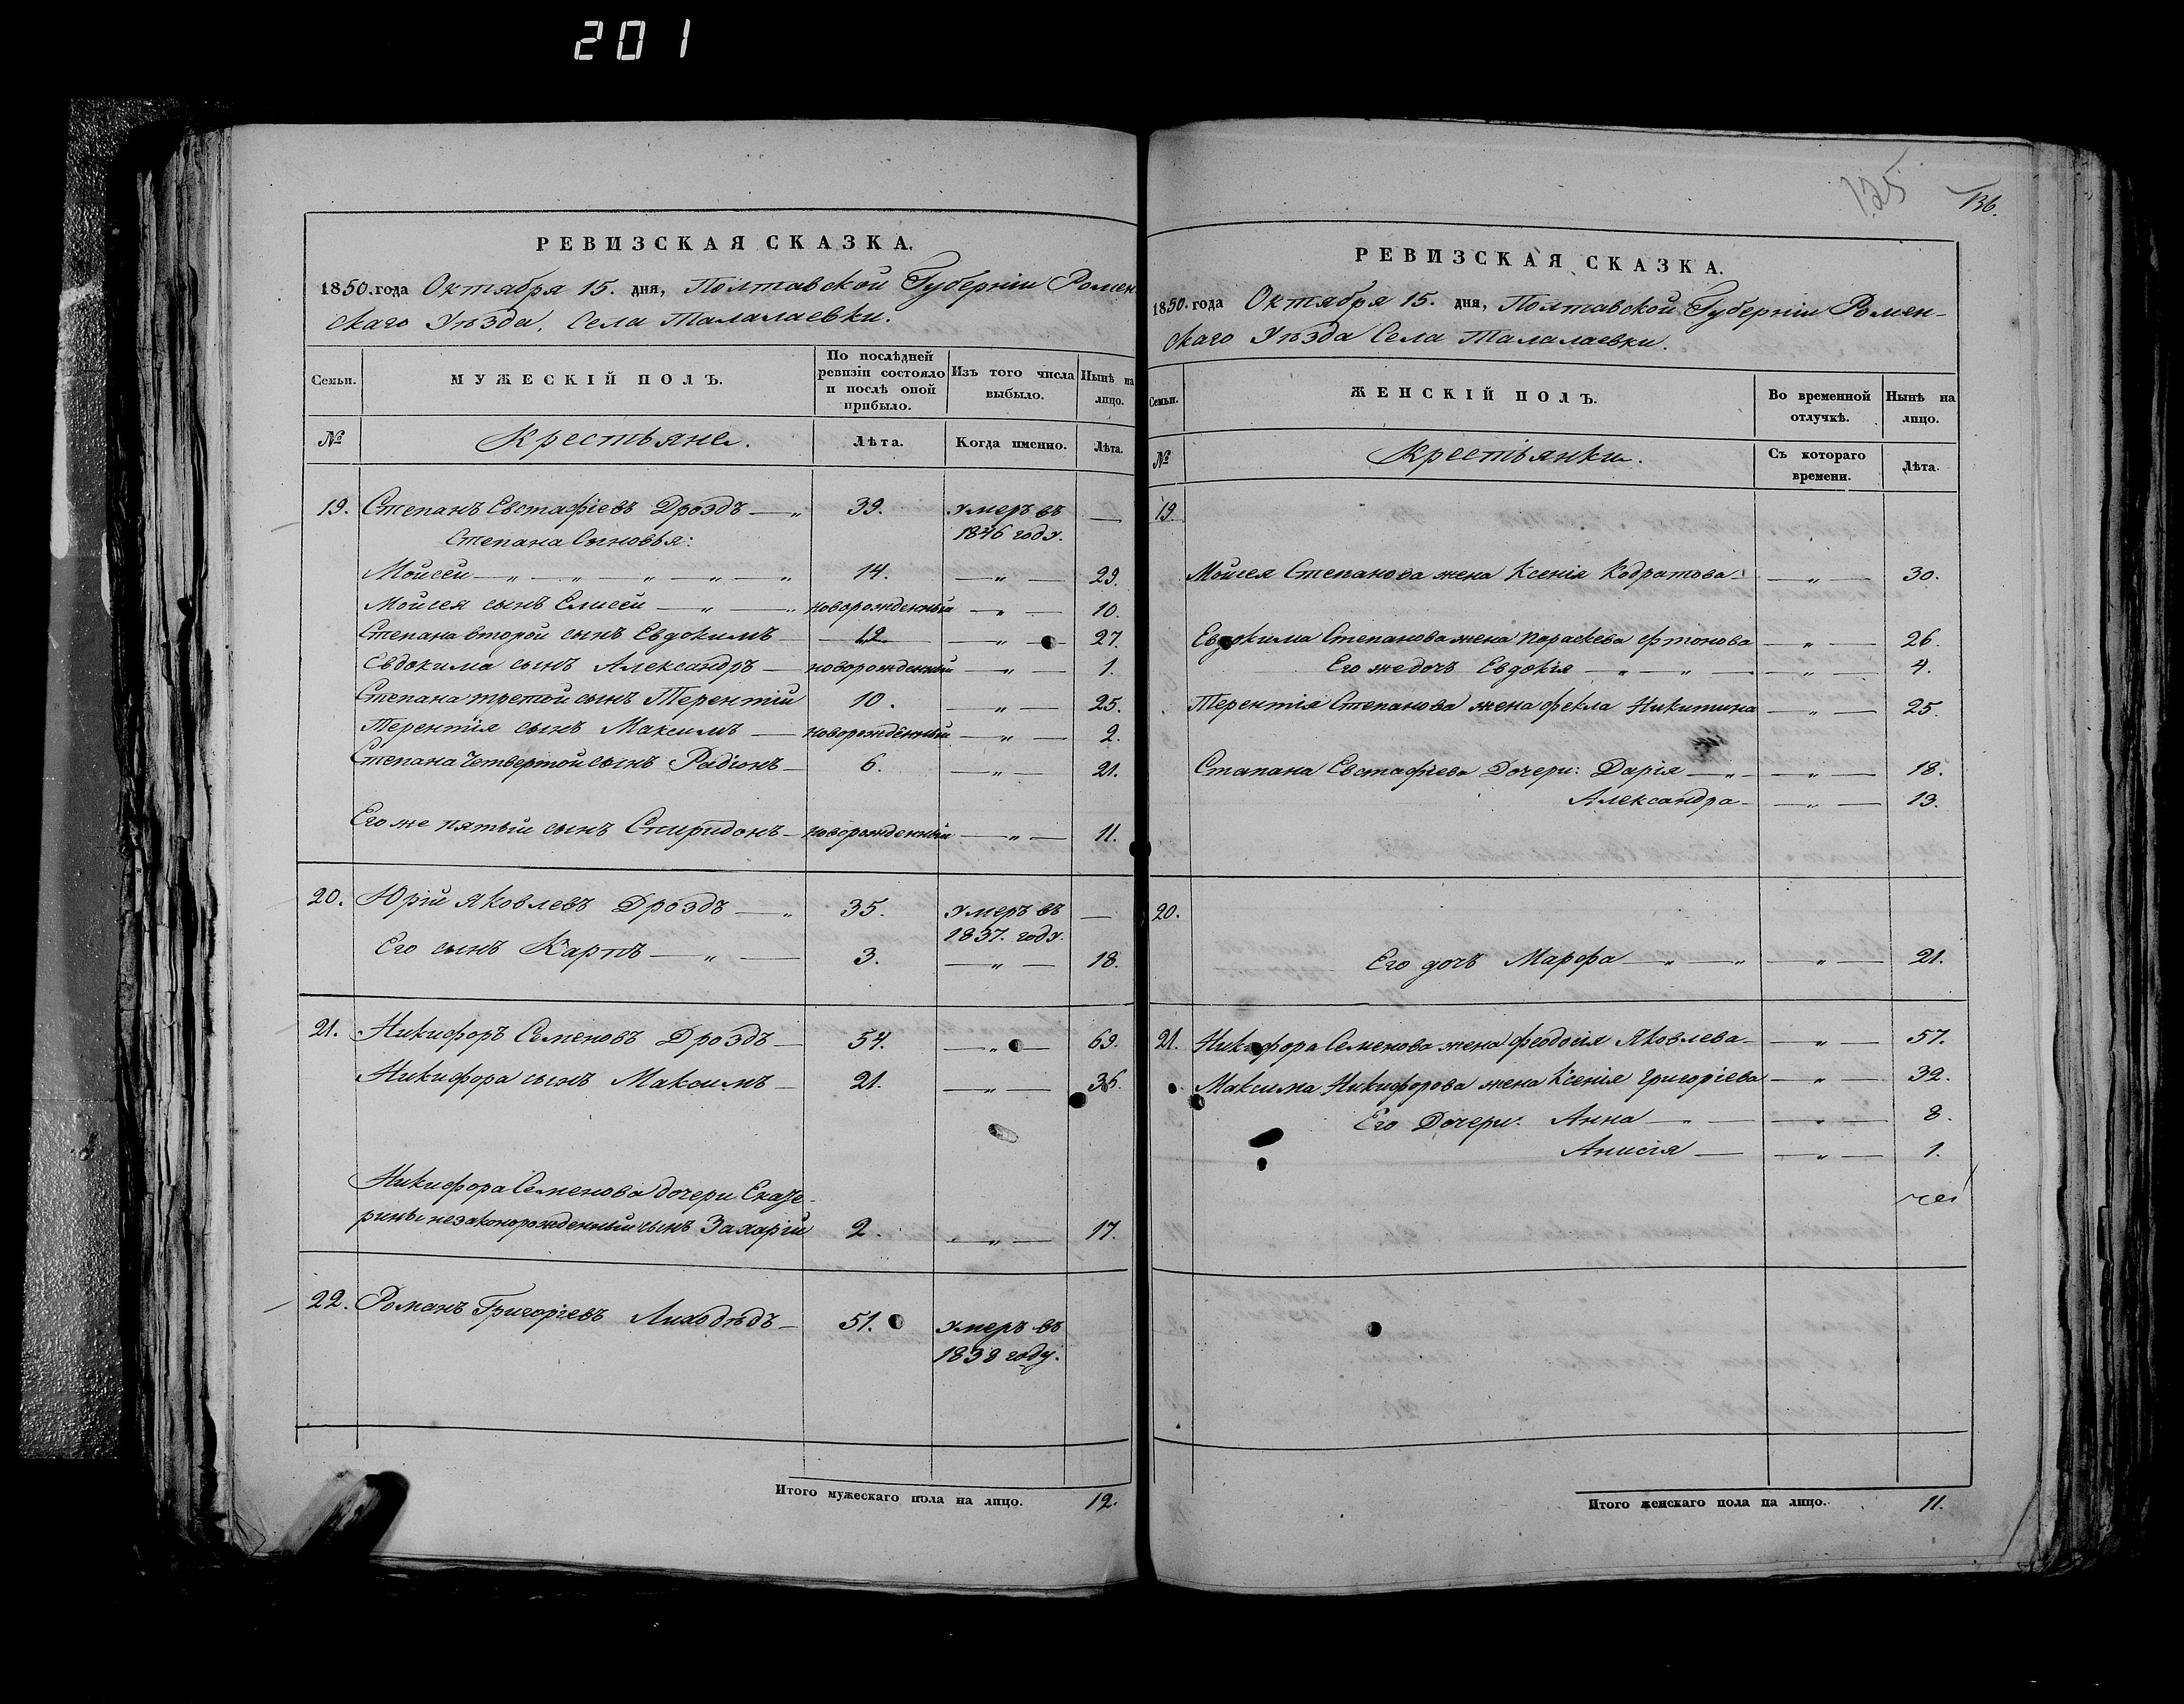 201
РЕВИЗСКАЯ СКАЗКА.
1850. года Октября 15. дня, Полтавской Губерніи Ромен
скаго Уѣзда, Села Талалаевки.
Семьи.
МУЖЕСКІЙ ПОЛЪ.
По послѣдней
ревизіи состояло
и послѣ оной
прибыло.
Изъ того числа
выбыло.
Нынѣ на
лицо.
№
Крестьяне.
Лѣта.
Когда именно.
Лѣта.
19. Степанъ Евстафіевъ Дроздъ — „ 39. умеръ въ —
Степана Сыновья: 1846 году.
Мойсей — „ — „ — „ — „ — „ 14. — „ — 29.
Мойсея сынъ Елисей — „ — „ новорожденный — „ — 10.
Степана второй сынъ Евдокимъ 12. — „ — 27.
Евдокима сынъ Александръ — новорожденный — „ — 1.
Степана третой сынъ Терентій 10. — „ — 25.
Терентія сынъ Максимъ — новорожденный — „ — 2.
Степана Четвертой сынъ Радіонъ — 6. — „ — 21.
Его же пятый сынъ Спиридонъ — новорожденный — „ — 11.
20. Юрій Яковлевъ Дроздъ — „ 35. умеръ въ —
1837. году.
Его сынъ Карпъ — „ — 3. — „ — 18.
21. Никифоръ Семеновъ Дроздъ — 54. — „ — 69.
Никифора сынъ Максимъ — 21. — „ — 36.
Никифора Семенова дочери Екате-
рины незаконорожденный сынъ Захарій 2. — „ — 17.
22. Романъ Григоріевъ Лиходѣдъ — 51. умеръ въ
1838 году.
Итого мужескаго пола на лицо. 12.
125 136.
РЕВИЗСКАЯ СКАЗКА.
1850. года Октября 15. дня, Полтавской Губерніи Ромен-
скаго Уѣзда Села Талалаевки.
Семьи.
ЖЕНСКІЙ ПОЛЪ.
Во временной
отлучкѣ.
Нынѣ на
лицо.
№
Крестьянки.
Съ котораго
времени.
Лѣта.
19.
Мойсея Степанова жена Ксенія Кодратова — — „ — 30.
Евдокима Степанова жена Параскева Фтонова — „ — 26.
Его же дочь Евдокія — „ — „ — — „ — 4.
Терентія Степанова жена Фекла Никитина — „ — 25.
Стапана Евстафіева Дочери: Дарія — „ — — „ — 18.
Александра — — „ — 13.
20.
Его дочь Марфа — „ — „ — „ — 21.
21. Никифора Семенова жена Феодосія Яковлева — — „ — 57.
Максима Никифорова жена Ксенія Григоріева — „ — 32.
Его Дочери: Анна — „ — — „ — 8.
Анисія — — „ — 1.
Итого женскаго пола на лицо. 11.